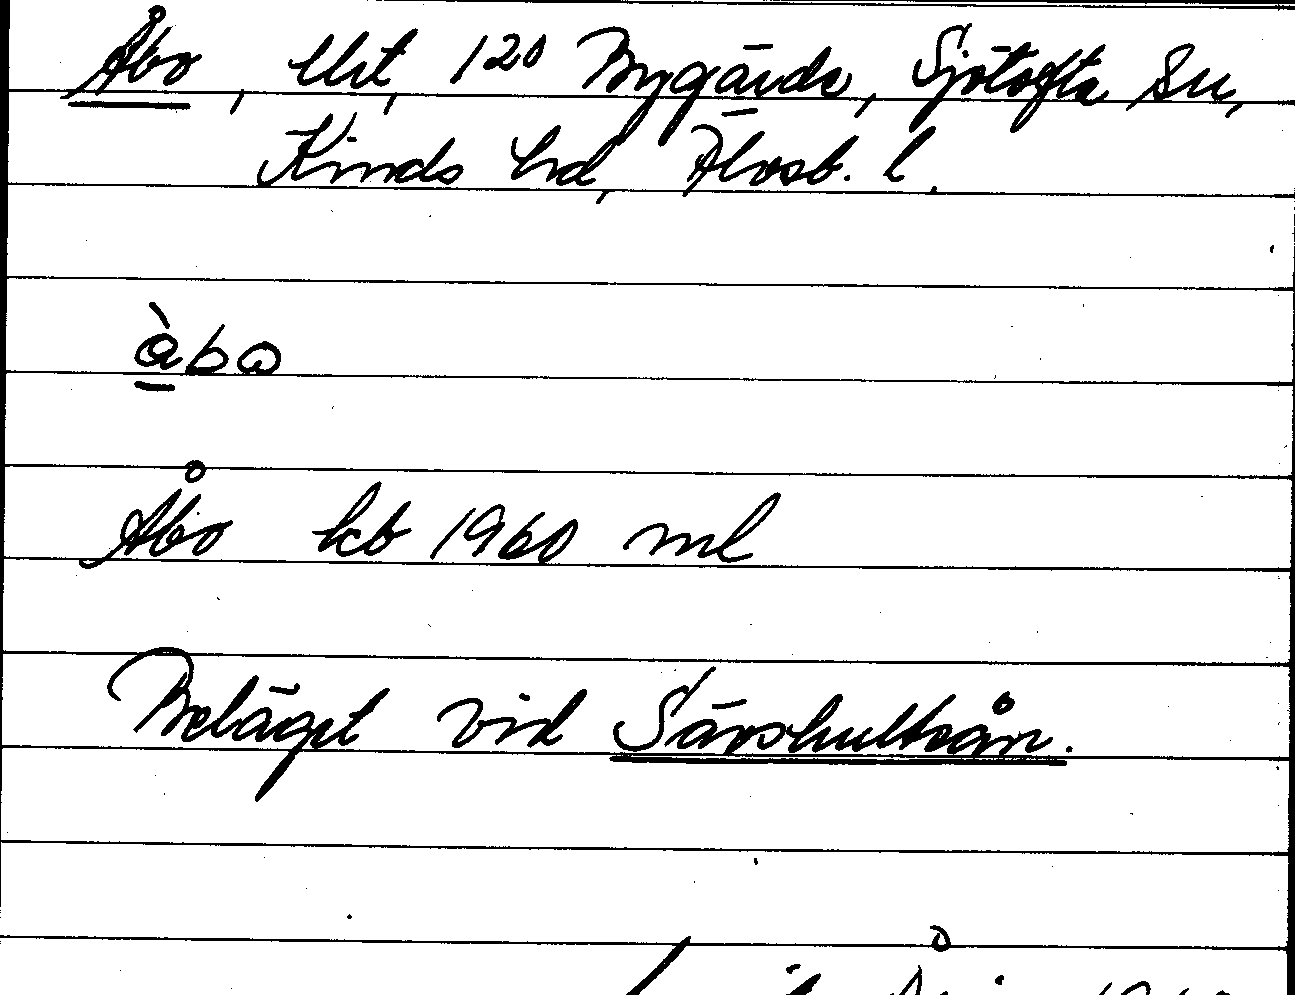 Åbo, lht, 120 Bygärde, Sjötofta sn,
Kinds hd, Älvsb. l.
àbo
Åbo kb 1960 ml
Beläget vid Särshultsån.